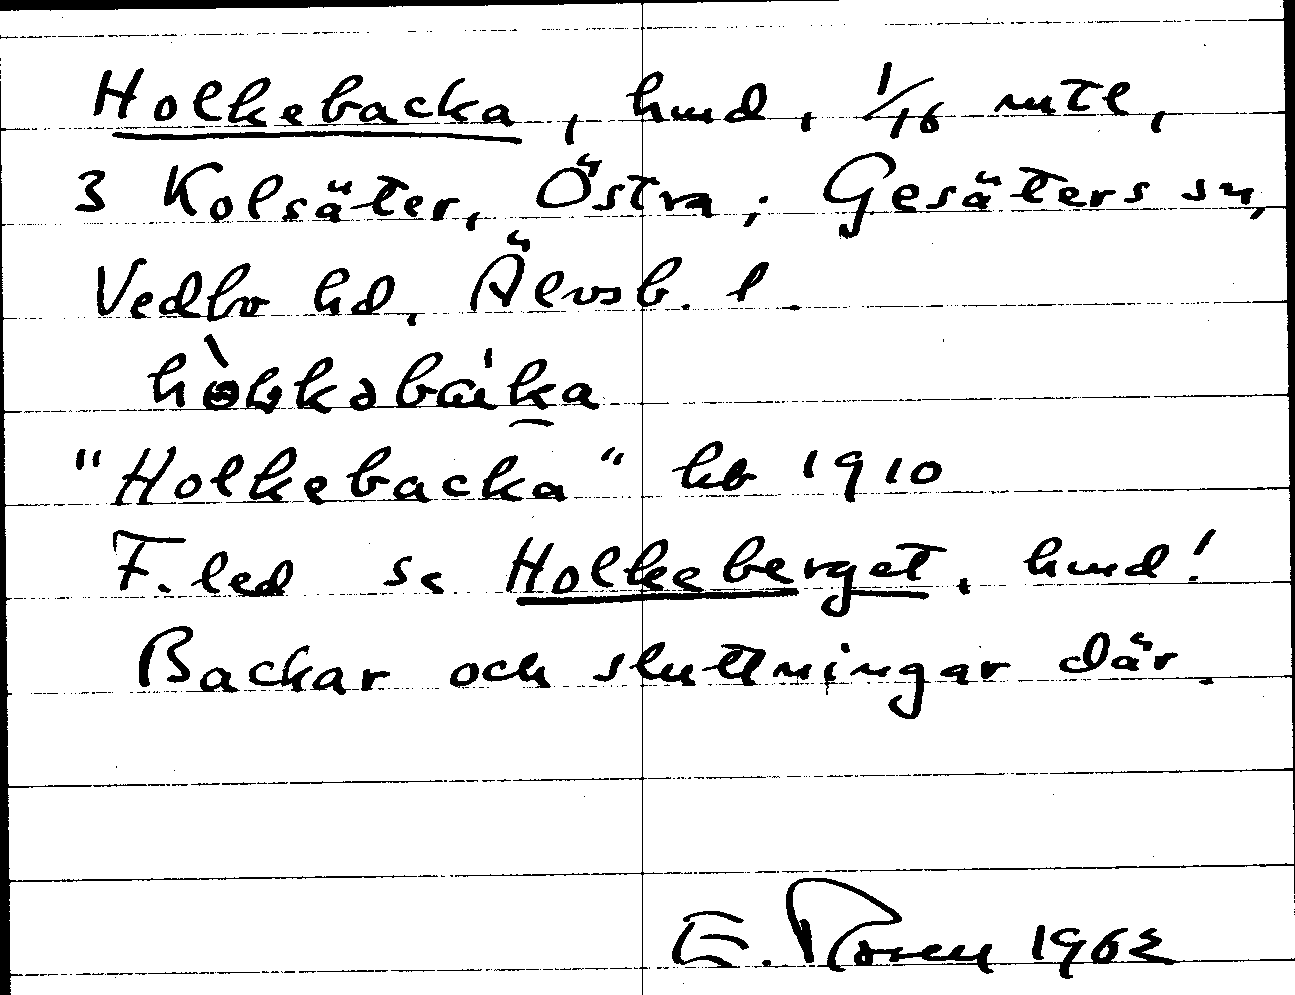 Holkebacka, hmd, 1/16 mtl,
3 Kolsäter, Östra; Gesäters sn,
Vedbo hd, Älvsb. l.
"Holkebacka" kb 1910
F.led se Holkeberget, hmd!
Backar och sluttningar där.
E. Rosen 1962